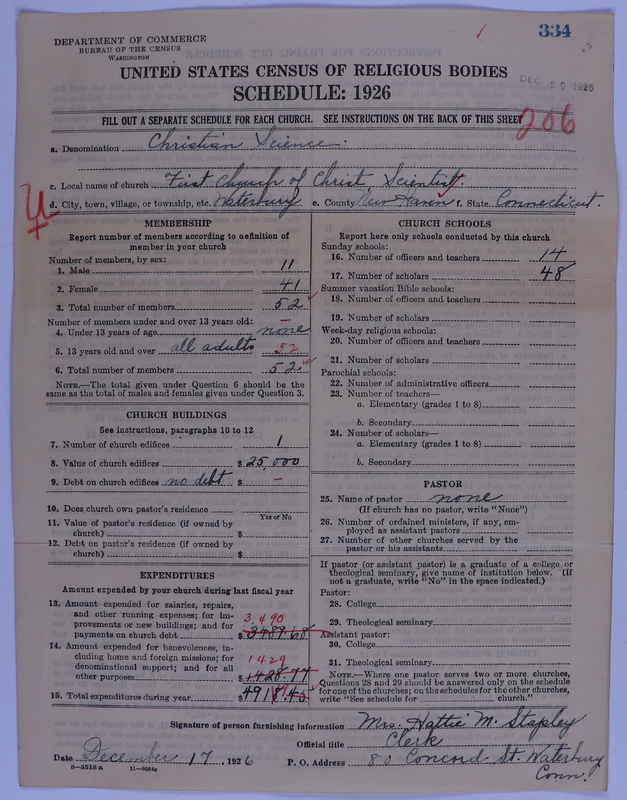 334
DEPARTMENT OF COMMERCE
BUREAU OF THE CENSUS
WASHINGTON
UNITED STATES CENSUS OF RELIGIOUS BODIES
SCHEDULE: 1926
DEC 20 1926
FILL OUT A SEPARATE SCHEDULE FOR EACH CHURCH. SEE INSTRUCTIONS ON THE BACK OF THIS SHEET
206
a. Denomination Christian Science.
c. Local name of church First Church of Christ, Scientist,
d. City, town, village, or township, etc. Waterbury e. County New Haven f. State Connecticut.
MEMBERSHIP
Report number of members according to definition of
member in your church
Number of members, by sex:
1. Male 11
2. Female 41
3. Total number of members 52
Number of members under and over 13 years old:
4. Under 13 years of age none
5. 13 years old and over all adults 52
6. Total number of members 52
NOTE.—The total given under Question 6 should be the
same as the total of males and females given under Question 3.
CHURCH BUILDINGS
See instructions, paragraphs 10 to 12
7. Number of church edifices 1
8. Value of church edifices $ 25,000
9. Debt on church edifices no debt $ —
10. Does church own pastor's residence
Yes or No
11. Value of pastor's residence (if owned by
church) $
12. Debt on pastor's residence (if owned by
church) $
EXPENDITURES
Amount expended by your church during last fiscal year
13. Amount expended for salaries, repairs,
and other running expenses; for im-
provements or new buildings; and for
payments on church debt $ 3489.68
3,490
14. Amount expended for benevolences, in-
cluding home and foreign missions; for
denominational support; and for all
other purposes $ 1428.77
1429
15. Total expenditures during year $ 4918.45
CHURCH SCHOOLS
Report here only schools conducted by this church
Sunday schools:
16. Number of officers and teachers 14
17. Number of scholars 48
Summer vacation Bible schools:
18. Number of officers and teachers
19. Number of scholars
Week-day religious schools:
20. Number of officers and teachers
21. Number of scholars
Parochial schools:
22. Number of administrative officers
23. Number of teachers—
a. Elementary (grades 1 to 8)
b. Secondary
24. Number of scholars—
a. Elementary (grades 1 to 8)
b. Secondary
PASTOR
25. Name of pastor none
(If church has no pastor, write "None")
26. Number of ordained ministers, if any, em-
ployed as assistant pastors
27. Number of other churches served by the
pastor or his assistants
If pastor (or assistant pastor) is a graduate of a college or
theological seminary, give name of institution below. (If
not a graduate, write "No" in the space indicated.)
Pastor:
28. College
29. Theological seminary
Assistant pastor:
30. College
31. Theological seminary
NOTE.—Where one pastor serves two or more churches,
Questions 28 and 29 should be answered only on the schedule
for one of the churches; on the schedules for the other churches,
write "See schedule for church."
Signature of person furnishing information Mrs. Hattie M. Stapley
Official title Clerk
Date December 17, 1926 P. O. Address 80 Concord St. Waterbury
Conn.
8—5518 a